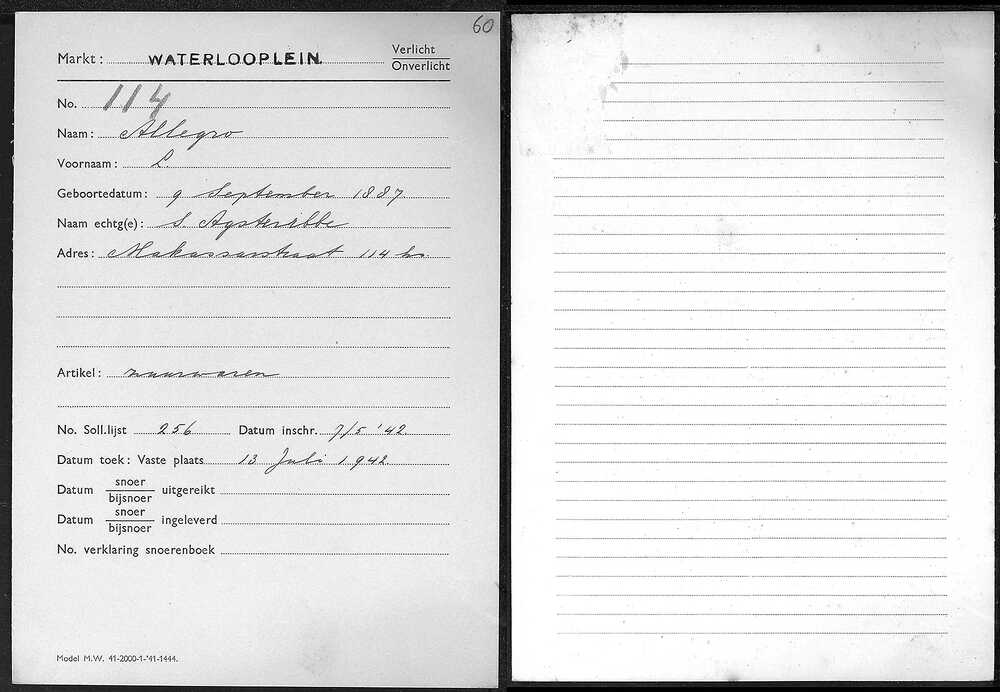 60
Markt: WATERLOOPLEIN. Verlicht
Onverlicht
No. 114
Naam: Allegro
Voornaam: L.
Geboortedatum: 9 September 1887
Naam echtg(e): S. Aysterribbe
Adres: Makassarstraat 114 hs.
Artikel: zuurwaren
No. Soll.lijst 256 Datum inschr. 7/5 '42.
Datum toek: Vaste plaats 13 Juli 1942
Datum snoer/bijsnoer uitgereikt
Datum snoer/bijsnoer ingeleverd
No. verklaring snoerenboek
Model M.W. 41-2000-1-'41-1444.